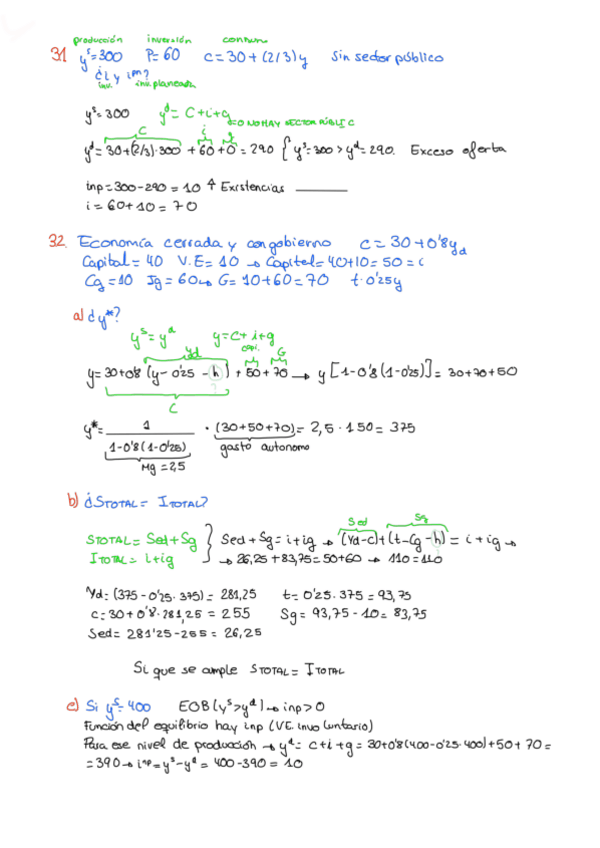 producción inversión consumo
31 yˢ=300 IP=60 C=30+(2/3)y Sin sector público
¿i y iⁿᵖ?
inv. inv. planeada
yˢ=300 yᵈ= C+i+g
=0 NO HAY SECTOR PÚBLIC
C i g
yᵈ= 30+(2/3)·300 + 60 + 0 = 290 { yˢ=300 > yᵈ=290. Exceso oferta
inp=300-290=10 ↑ Existencias
i = 60+10 = 70
32. Economía cerrada y con gobierno C=30+0'8yd
Capital= 40 V.E= 10 → Capital= 40+10=50 = i
Cg=10 Ig=60 → G= 10+60=70 t·0'25y
a) ¿y*?
yˢ=yᵈ y=C+i+g
Yd G
y= 30+0'8 (y-0'25-h) + 50+70 → y[1-0'8(1-0'25)] = 30+70+50
C
y*= 1 / 1-0'8(1-0'25) · (30+50+70)= 2,5 · 150 = 375
gasto autonomo
Mg=2,5
b) ¿STOTAL= ITOTAL?
Sed Sg
STOTAL= Sed+Sg } Sed+Sg=i+ig → (Yd-c)+(t-Cg-h)= i+ig →
ITOTAL= i+ig → 26,25+83,75=50+60 → 110=110
Yd= (375-0'25·375)= 281,25 t=0'25·375=93,75
c=30+0'8·281,25 = 255 Sg= 93,75-10= 83,75
Sed= 281'25-255 = 26,25
Si que se cumple STOTAL= ITOTAL
c) Si yˢ=400 EOB(yˢ>yᵈ)→inp>0
Función del equilibrio hay inp (V.E. involuntario)
Para ese nivel de producción → yᵈ= c+i+g = 30+0'8(400-0'25·400)+50+70=
=390→ iⁿᵖ=yˢ-yᵈ= 400-390= 10